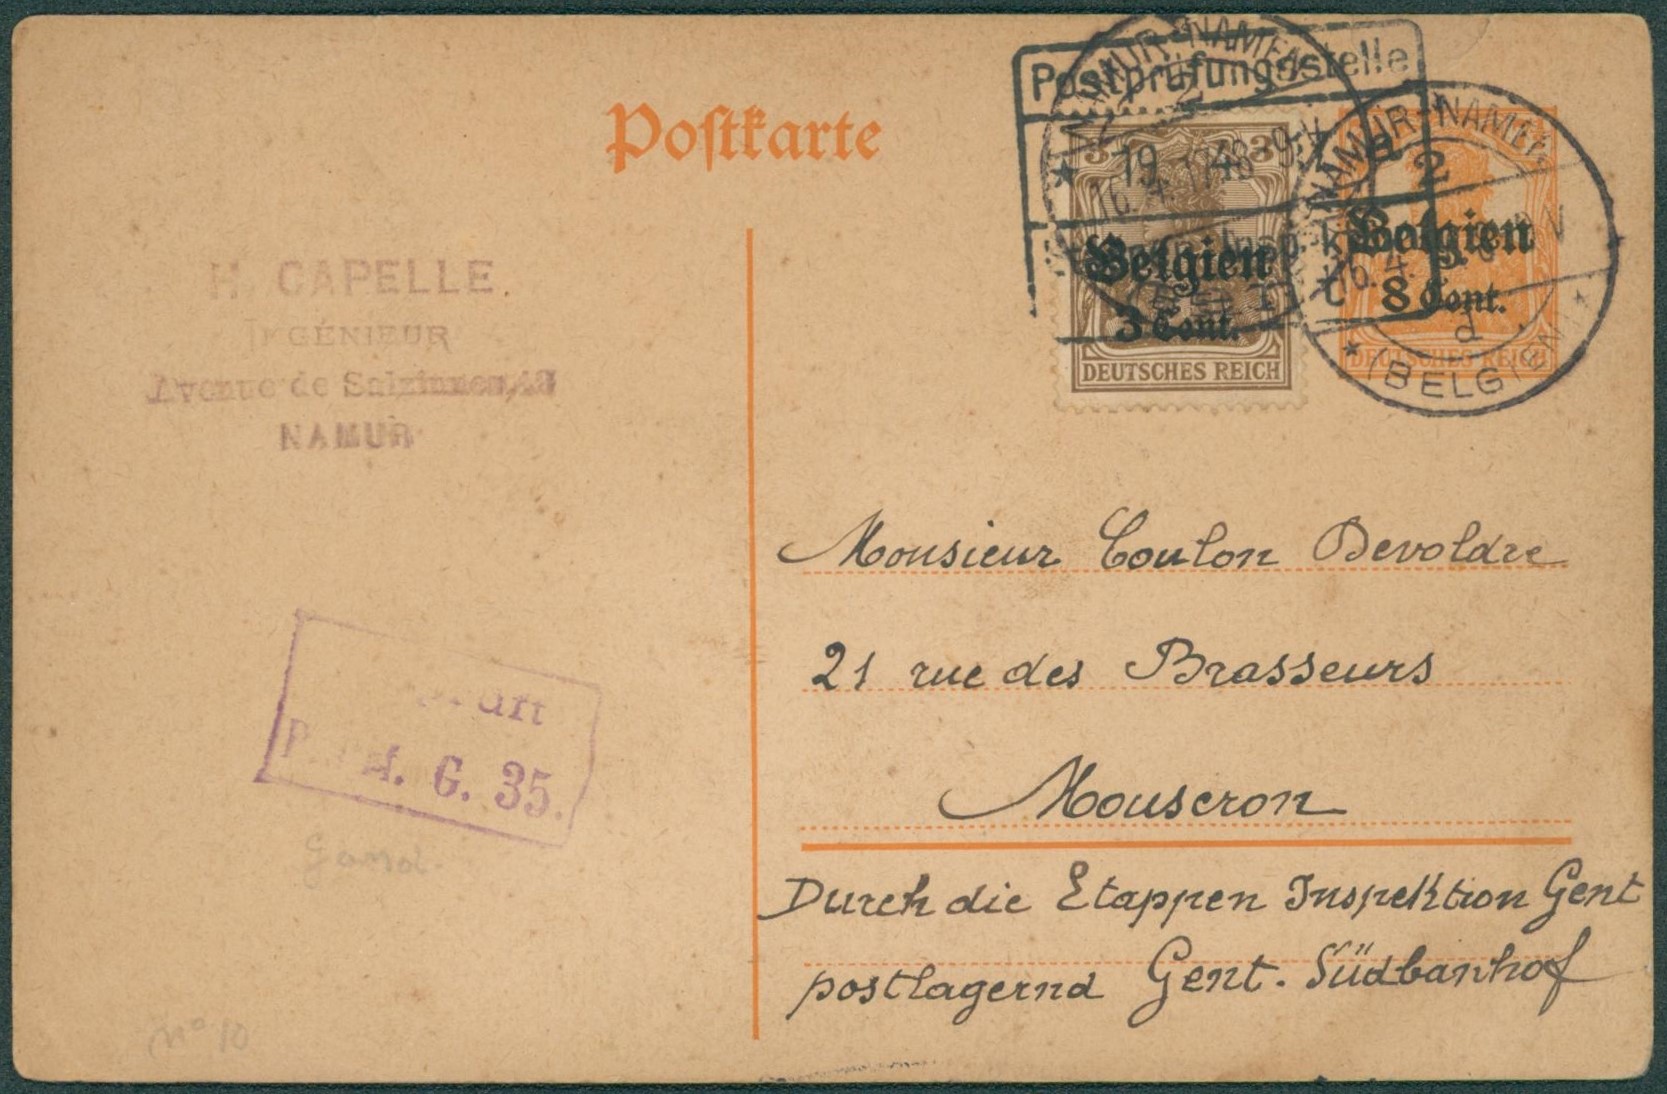 Postkarte
Postprüfungsstelle
NAMUR-NAMEN
19 4
16. 4. 17 8-9 V
3 3
Belgien
3 Cent.
DEUTSCHES REICH
NAMUR-NAMEN
2
16. 4.
d
(BELGIEN)
Belgien
8 Cent.
DEUTSCHES REICH
H. CAPELLE
INGÉNIEUR
Avenue de Salzinnes,
NAMUR
G. 35.
Gand.
N° 10
Monsieur Coulon Devoldre
21 rue des Brasseurs
Mouscron
Durch die Etappen Inspektion Gent
postlagernd Gent. Südbanhof